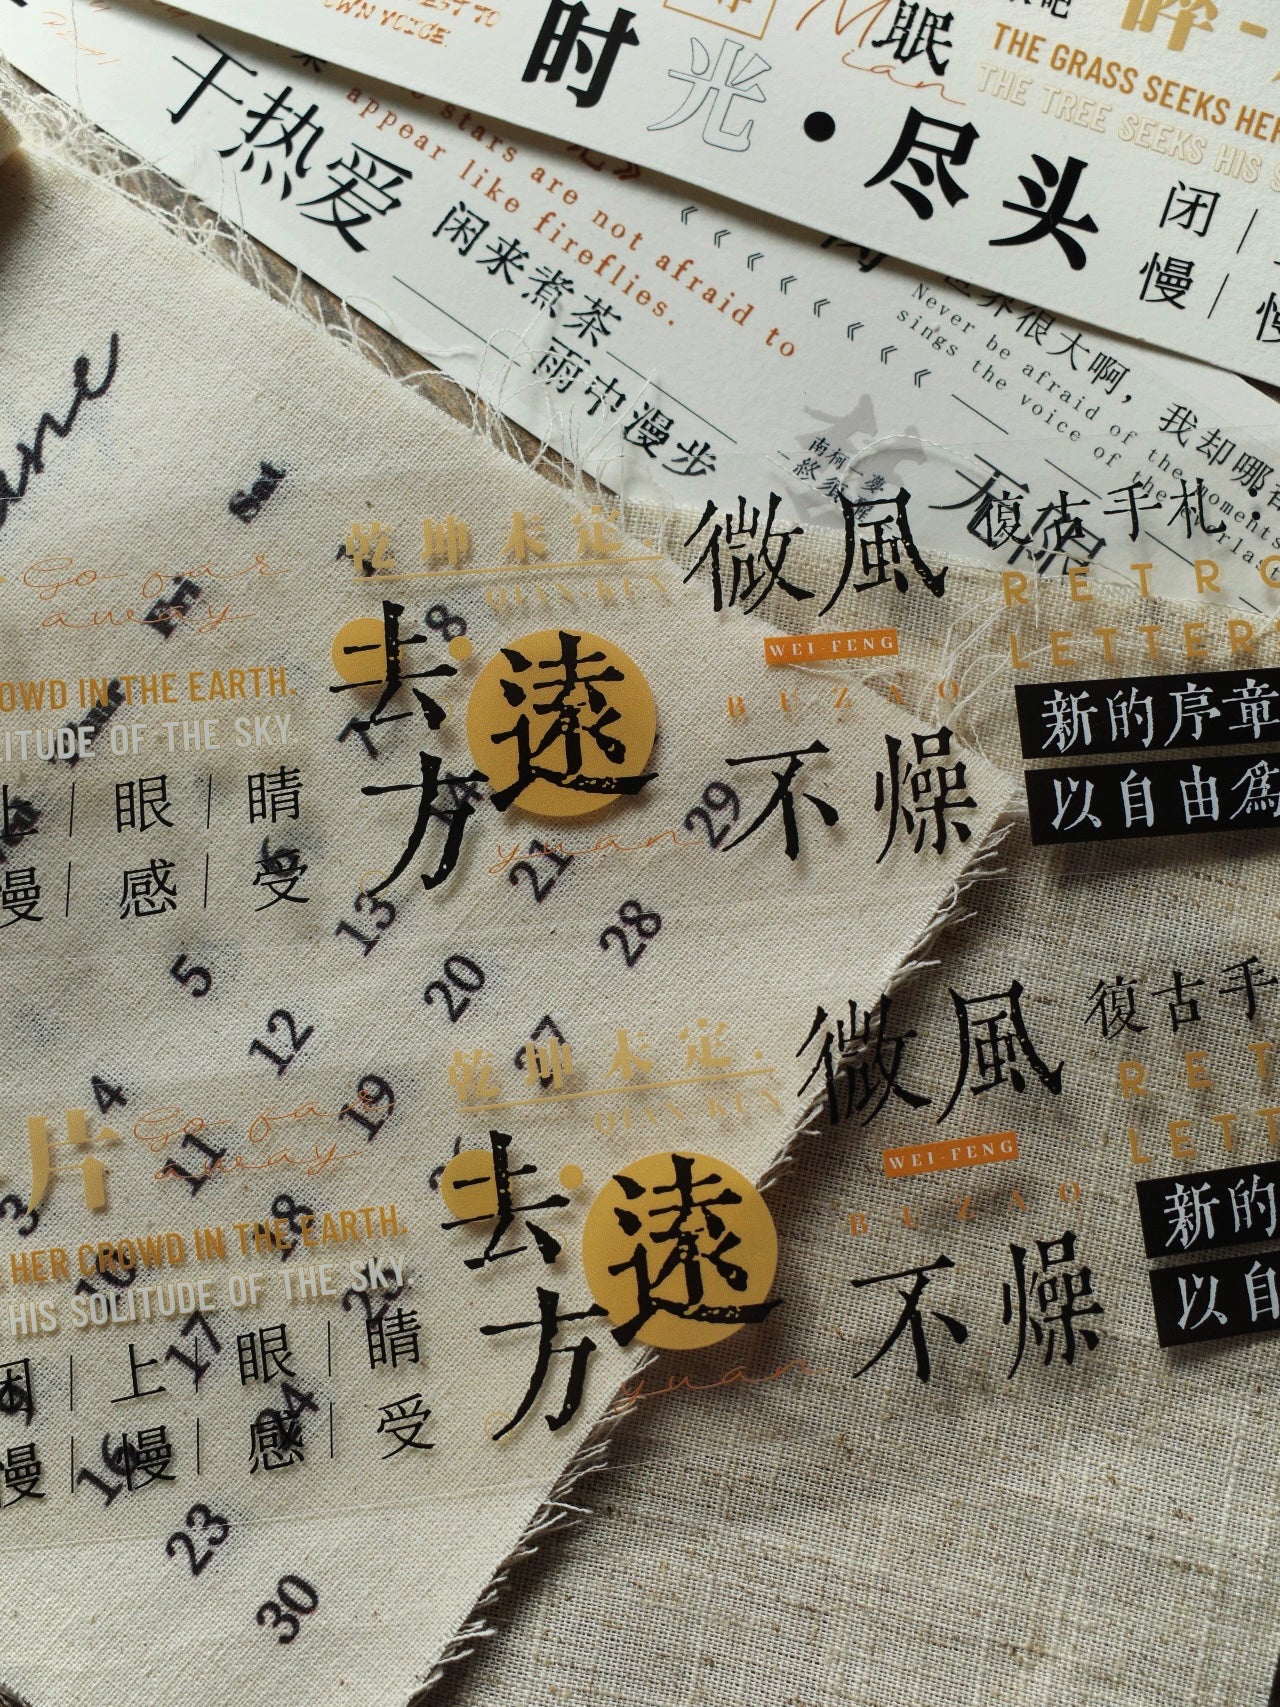 OWN VOICE.
时光·尽头
眠
Mian
THE GRASS SEEKS HER
THE TREE SEEKS HIS S
闭
慢
于热爱
stars are not afraid to
appear like fireflies.
闲来煮茶
雨中漫步
《《《《《《《《
世界很大啊，我却哪
Never be afraid of the moments
sings the voice of the everlast
南柯一夢
終須醒
ane
Sat
Fri
Go far
away
OWD IN THE EARTH.
LITUDE OF THE SKY.
上｜眼｜睛
慢｜感｜受
乾坤未定.
QIAN·KUN
去
遠
方
yuan
微風
WEI-FENG
BUZAO
不燥
復古手札·
RETRO
LETTER
新的序章
以自由爲
29
21
28
13
20
27
5
12
19
4
11
18
10
17
24
16
23
30
片
Go far
away
HER CROWD IN THE EARTH.
HIS SOLITUDE OF THE SKY.
闭｜上｜眼｜睛
慢｜慢｜感｜受
乾坤未定.
QIAN·KUN
去
遠
方
yuan
微風
WEI-FENG
BUZAO
不燥
復古手
RET
LETT
新的
以自